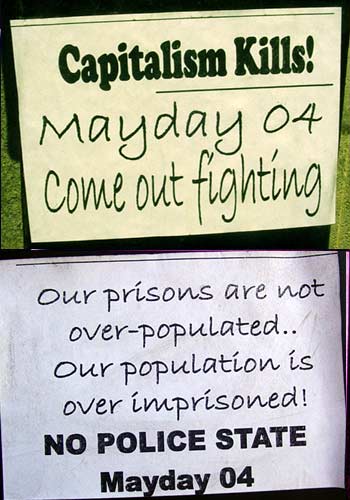 Capitalism Kills!
Mayday 04
Come out fighting
Our prisons are not
over-populated..
Our population is
over imprisoned!
NO POLICE STATE
Mayday 04